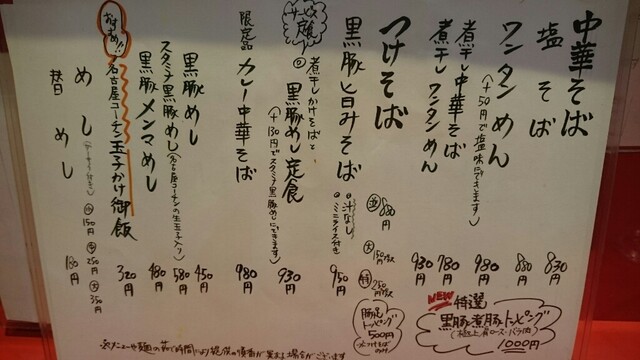 中華そば 830円
塩そば 880円
ワンタンめん 980円
(+50円で塩味にできます)
煮干し中華そば 780円
煮干しワンタンめん 930円
つけそば
並 880円
大 150円増
特 250円増
黒豚旨みそば 950円
・汁なし
・ミニライス付き
サービス定食
煮干しかけそばと
黒豚めし定食 930円
(+130円でスタミナ黒豚めしにできます)
限定品
カレー中華そば 980円
黒豚めし 450円
スタミナ黒豚めし(名古屋コーチンの生玉子入り) 580円
黒豚メンマめし 480円
おすすめ!!
名古屋コーチン玉子かけ御飯 320円
めし
小 150円
中 250円
大 350円
替めし 130円
NEW 特選
黒豚煮豚トッピング
(極上肩ロース・バラ肉)
1000円
豚尻
トッピング
500円
※つけそば
のみ
※メニューや麺の茹で時間により提供の順番が異なる場合がございます